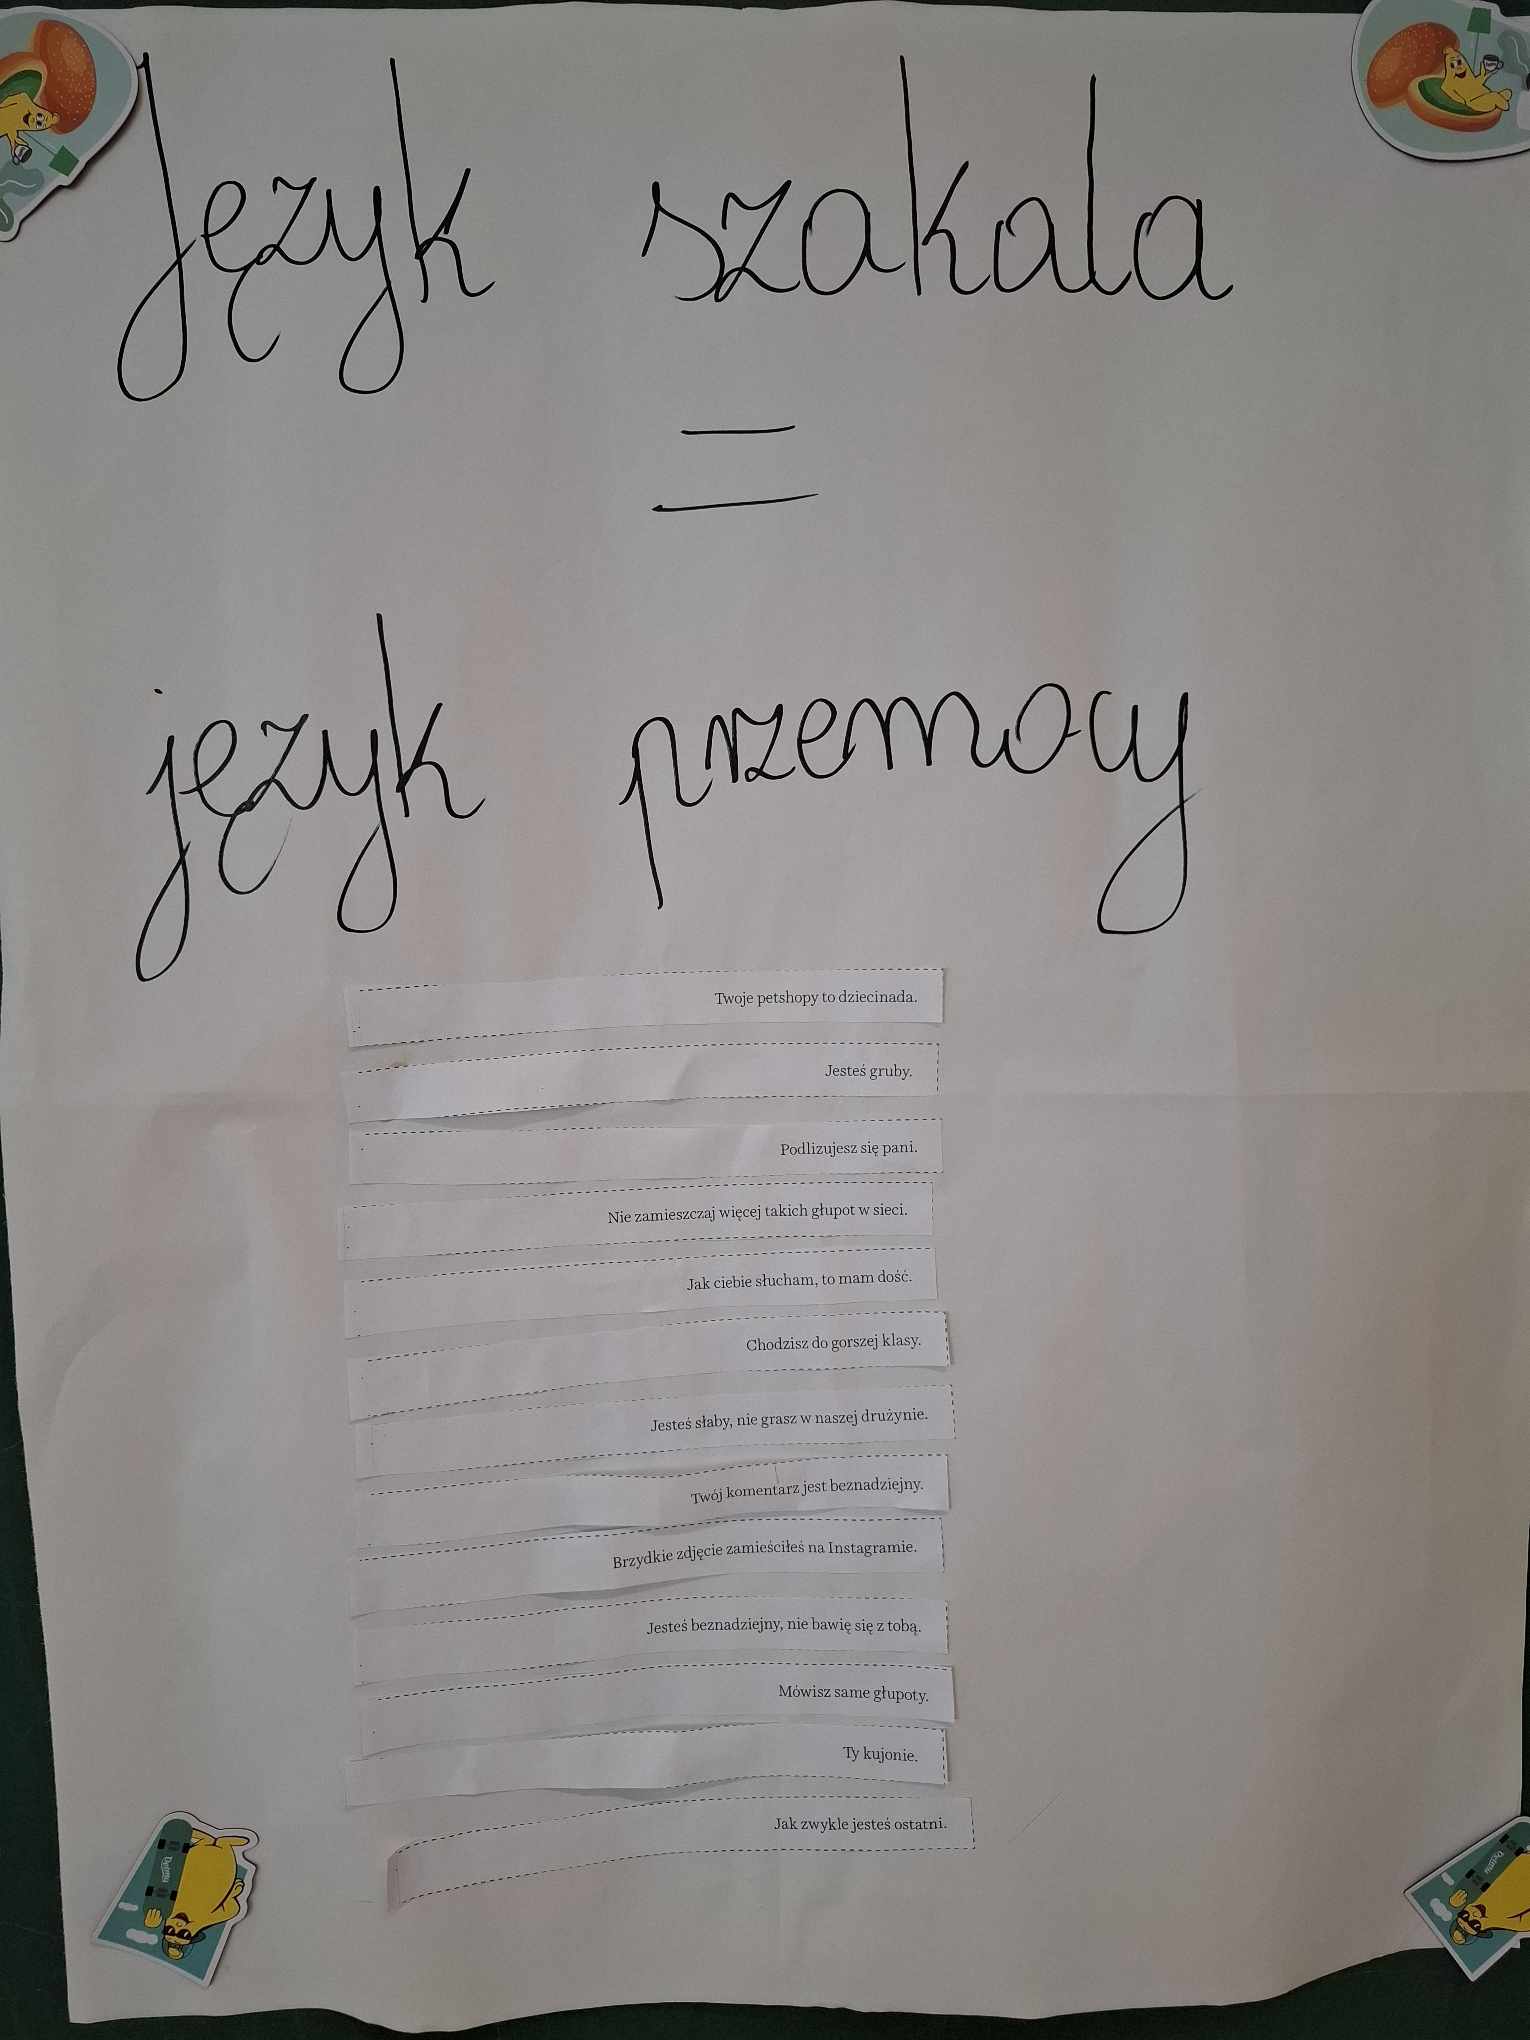 Język szakala
=
język przemocy
Twoje petshopy to dziecinada.
Jesteś gruby.
Podlizujesz się pani.
Nie zamieszczaj więcej takich głupot w sieci.
Jak ciebie słucham, to mam dość.
Chodzisz do gorszej klasy.
Jesteś słaby, nie grasz w naszej drużynie.
Twój komentarz jest beznadziejny.
Brzydkie zdjęcie zamieściłeś na Instagramie.
Jesteś beznadziejny, nie bawię się z tobą.
Mówisz same głupoty.
Ty kujonie.
Jak zwykle jesteś ostatni.